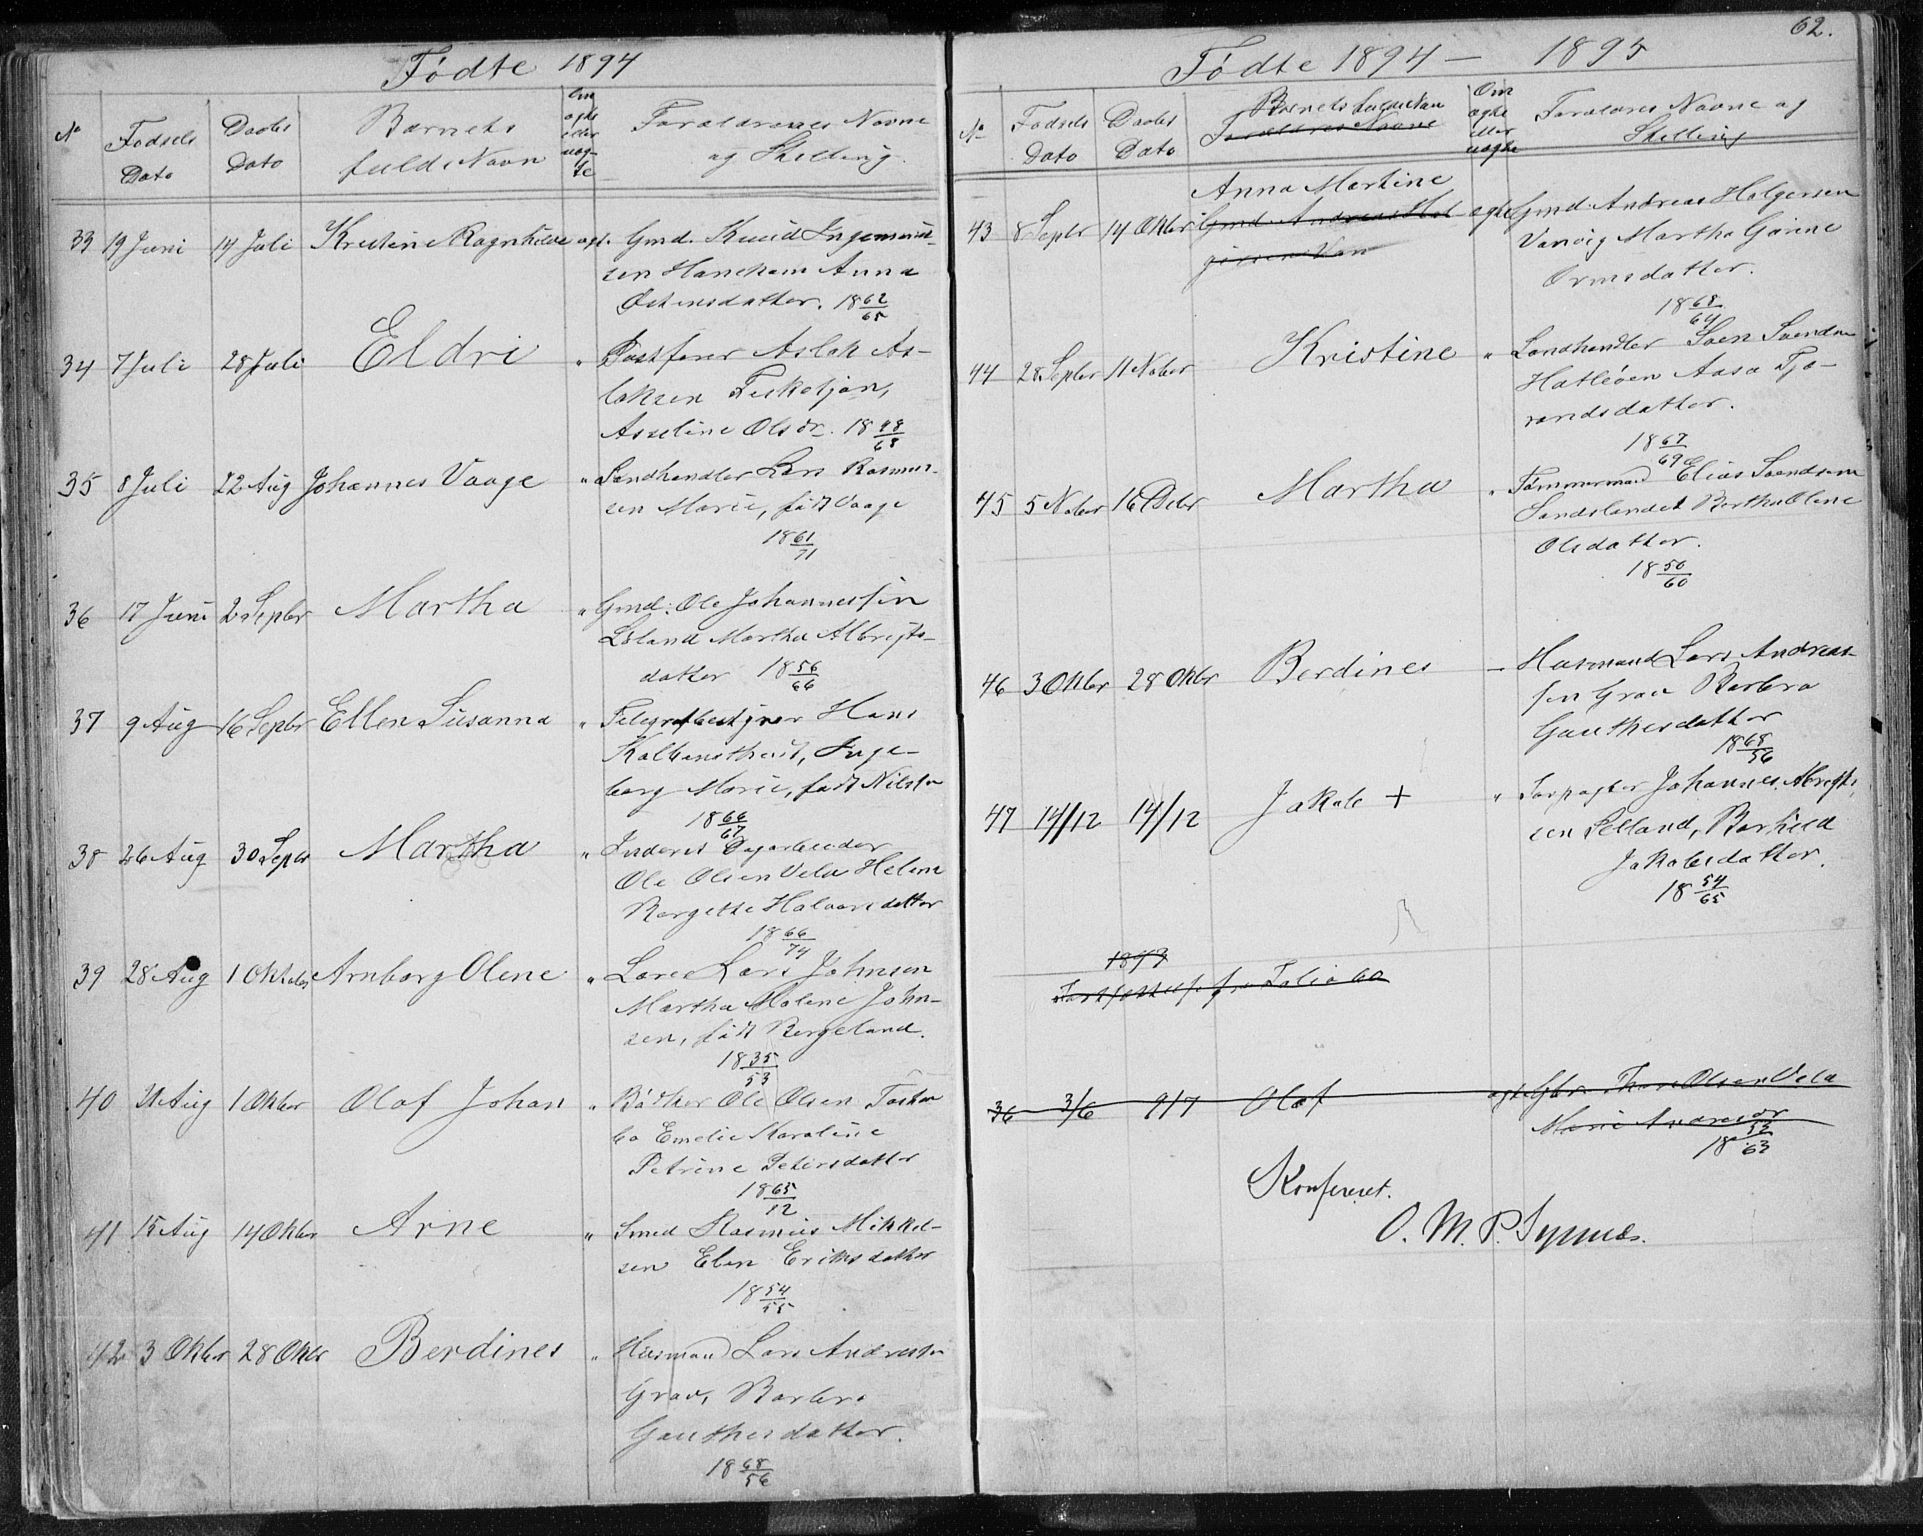 Fødte 1894
No
Fødsels Dato
Daabs Dato
Barnets fulde Navn
Om ægte eller uægte
Forældrenes Navne og Stilling.
33 19 Juni 14 Juli Kristine Ragnhilde ægt. Gmd. Knud Ingemund-
sen Haneham Anna
Østensdatter. 18 62/65
34 7 Juli 28 Juli Eldri " Postfører Aslak As-
laksen Fisketjøn,
Asseline Olsdr. 18 /68
35 8 Juli 22 Aug Johannes Vaage " Landhandler Lars Rasmus-
sen Marie, født Vaage
18 61/71
36 17 Juni 2 Sepbr Martha " Gmd. Ole Johannessen
Martha Albrigts-
datter 18 56/66
37 9 Aug 16 Sepbr Ellen Susanna " Telegrafbestyrer Hans
Inge-
borg Marie, født Nilsen
18 66/67
38 26 Aug 30 Sepbr Martha "
Ole Olsen Vela Helene
Bergette Halvorsdatter
18 66/74
39 28 Aug 1 Oktober Arnborg Olene " Lars Johnsen
Martha Malene John-
sen, født Bergeland.
18 35/53
40 21 Aug 1 Oktbr Olaf Johan " Bødker Ole Olsen
Emelie Karoline
Petrine Petersdatter
18 65/12
41 15 Aug 14 Oktbr Arne " Smed Rasmus Mikkel-
sen Elen Eriksdatter
18 54/55
42 3 Oktbr 28 Oktbr Berdines " Husmand Lars Andreassen
Grav, Barbro
Gauthesdatter.
18 68/56
62.
Fødte 1894 — 1895
No
Fødsels Dato
Daabs Dato
Barnets fulde Navn
Forældres Navne
Om ægte eller uægte
Forældres Navne og Stilling
Anna Martine
43 8 Sepbr 14 Oktbr Gmd. Andreas Hol- ægte Gmd. Andreas Holgersen
gersen Van Vanvig Martha Gurine
Ormsdatter.
18 68/64
44 28 Sepbr 11 Nober Kristine " Landhandler Sven Svendsen
Hatleøen Aasa Tjø-
randsdatter.
18 67/69
45 5 Nober 16 Deber Martha " Tømmermand Elias Svendsen
Sandslandet Bertha Olene
Olsdatter.
18 50/60
46 3 Oktbr 28 Oktbr Berdines — Husmand Lars Andreas-
sen Grav Barbro
Gauthesdatter
18 68/56
47 14/12 14/12 Jakob + " Forpagter Johannes Albrigt-
sen Lelland, Borhild
Jakobsdatter.
18 54/65
1893
Fortsættelse fra Folio 60
36 3/6 9/7 Olaf ægt Gbr. Thore Olsen Vela
Marie Andresdr
18 53/63
Konfereret.
O. M. P. Synnes.